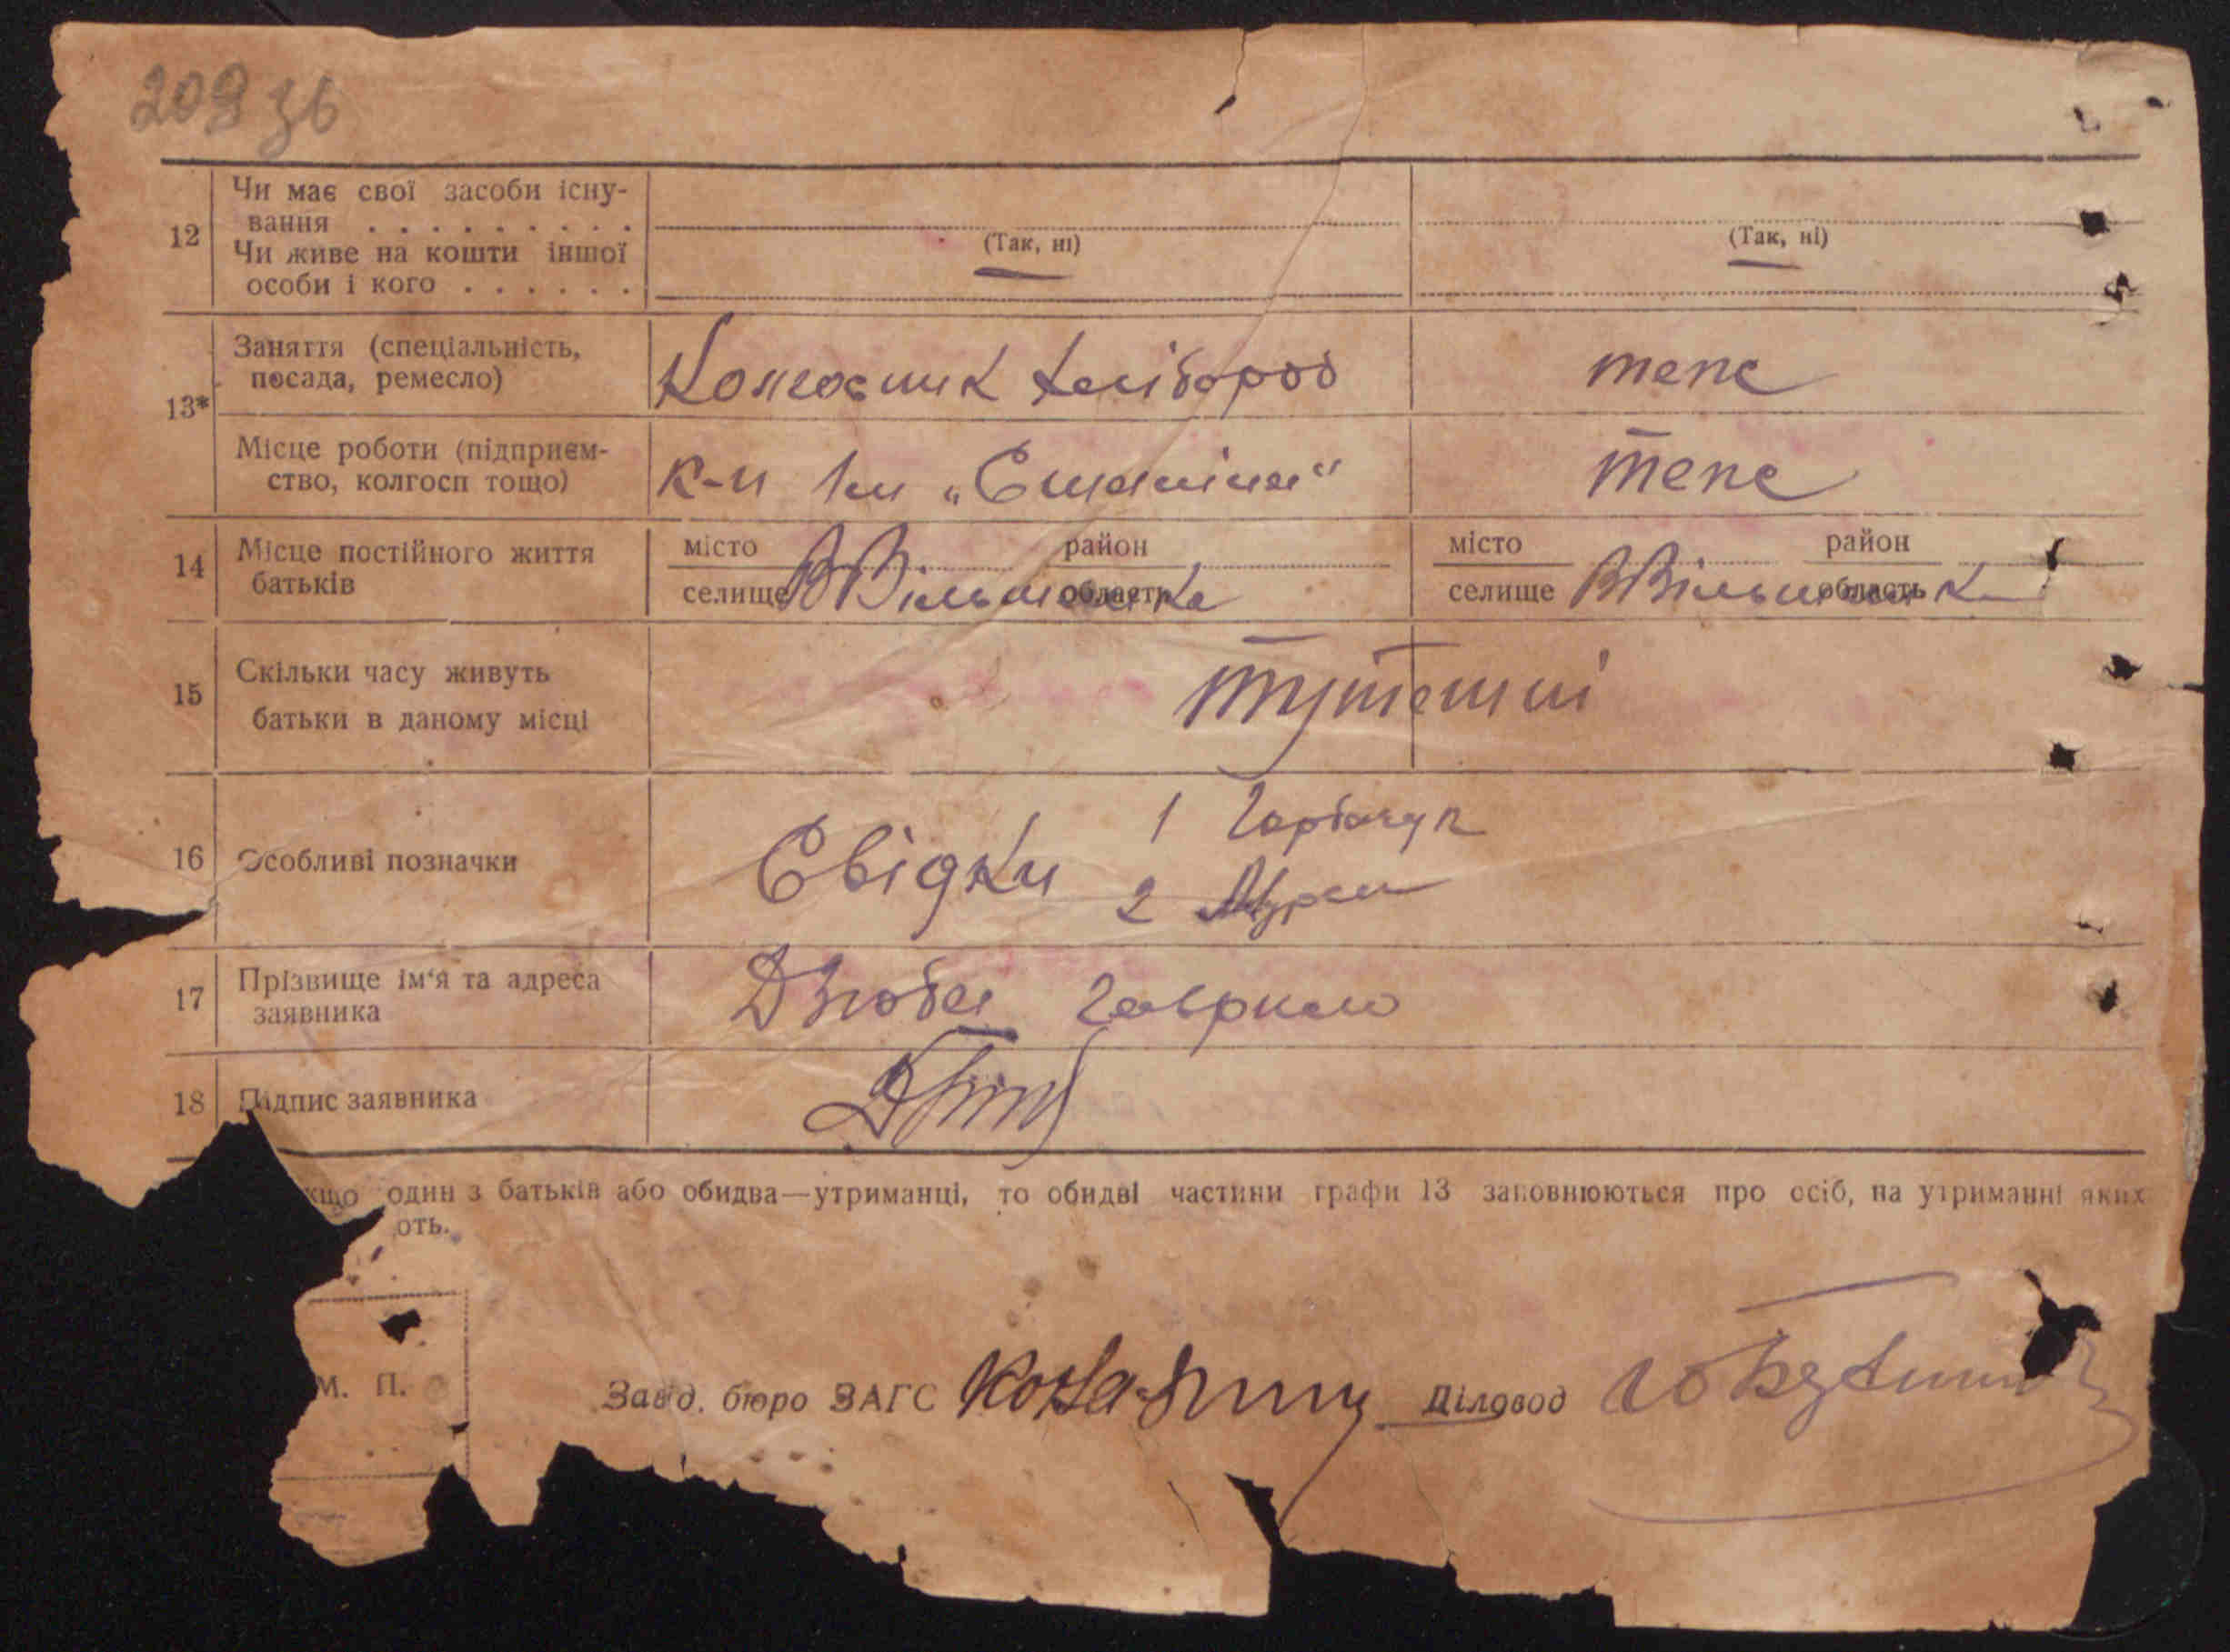 209 зв
12 Чи має свої засоби існу-
вання . . . . . . . . . .
Чи живе на кошти іншої
особи і кого . . . . . .
(Так, ні) (Так, ні)
13* Заняття (спеціальність,
посада, ремесло) Колгосник хлібороб теж
Місце роботи (підприєм-
ство, колгосп тощо) к-п Ім „Сталіна" теж
14 Місце постійного життя
батьків
місто район місто район
селище ВВільшанка область селище ВВільшанка область
15 Скільки часу живуть
батьки в даному місці
тутешні
16 Особливі позначки Свідки 1 Горбачук
2
17 Прізвище ім'я та адреса
заявника Дзюба Гаврило
18 Підпис заявника
кщо один з батьків або обидва—утриманці, то обидві частини графи 13 заповнюються про осіб, на утриманні яких
ють.
М. П.
Завід. бюро ЗАГС Діловод